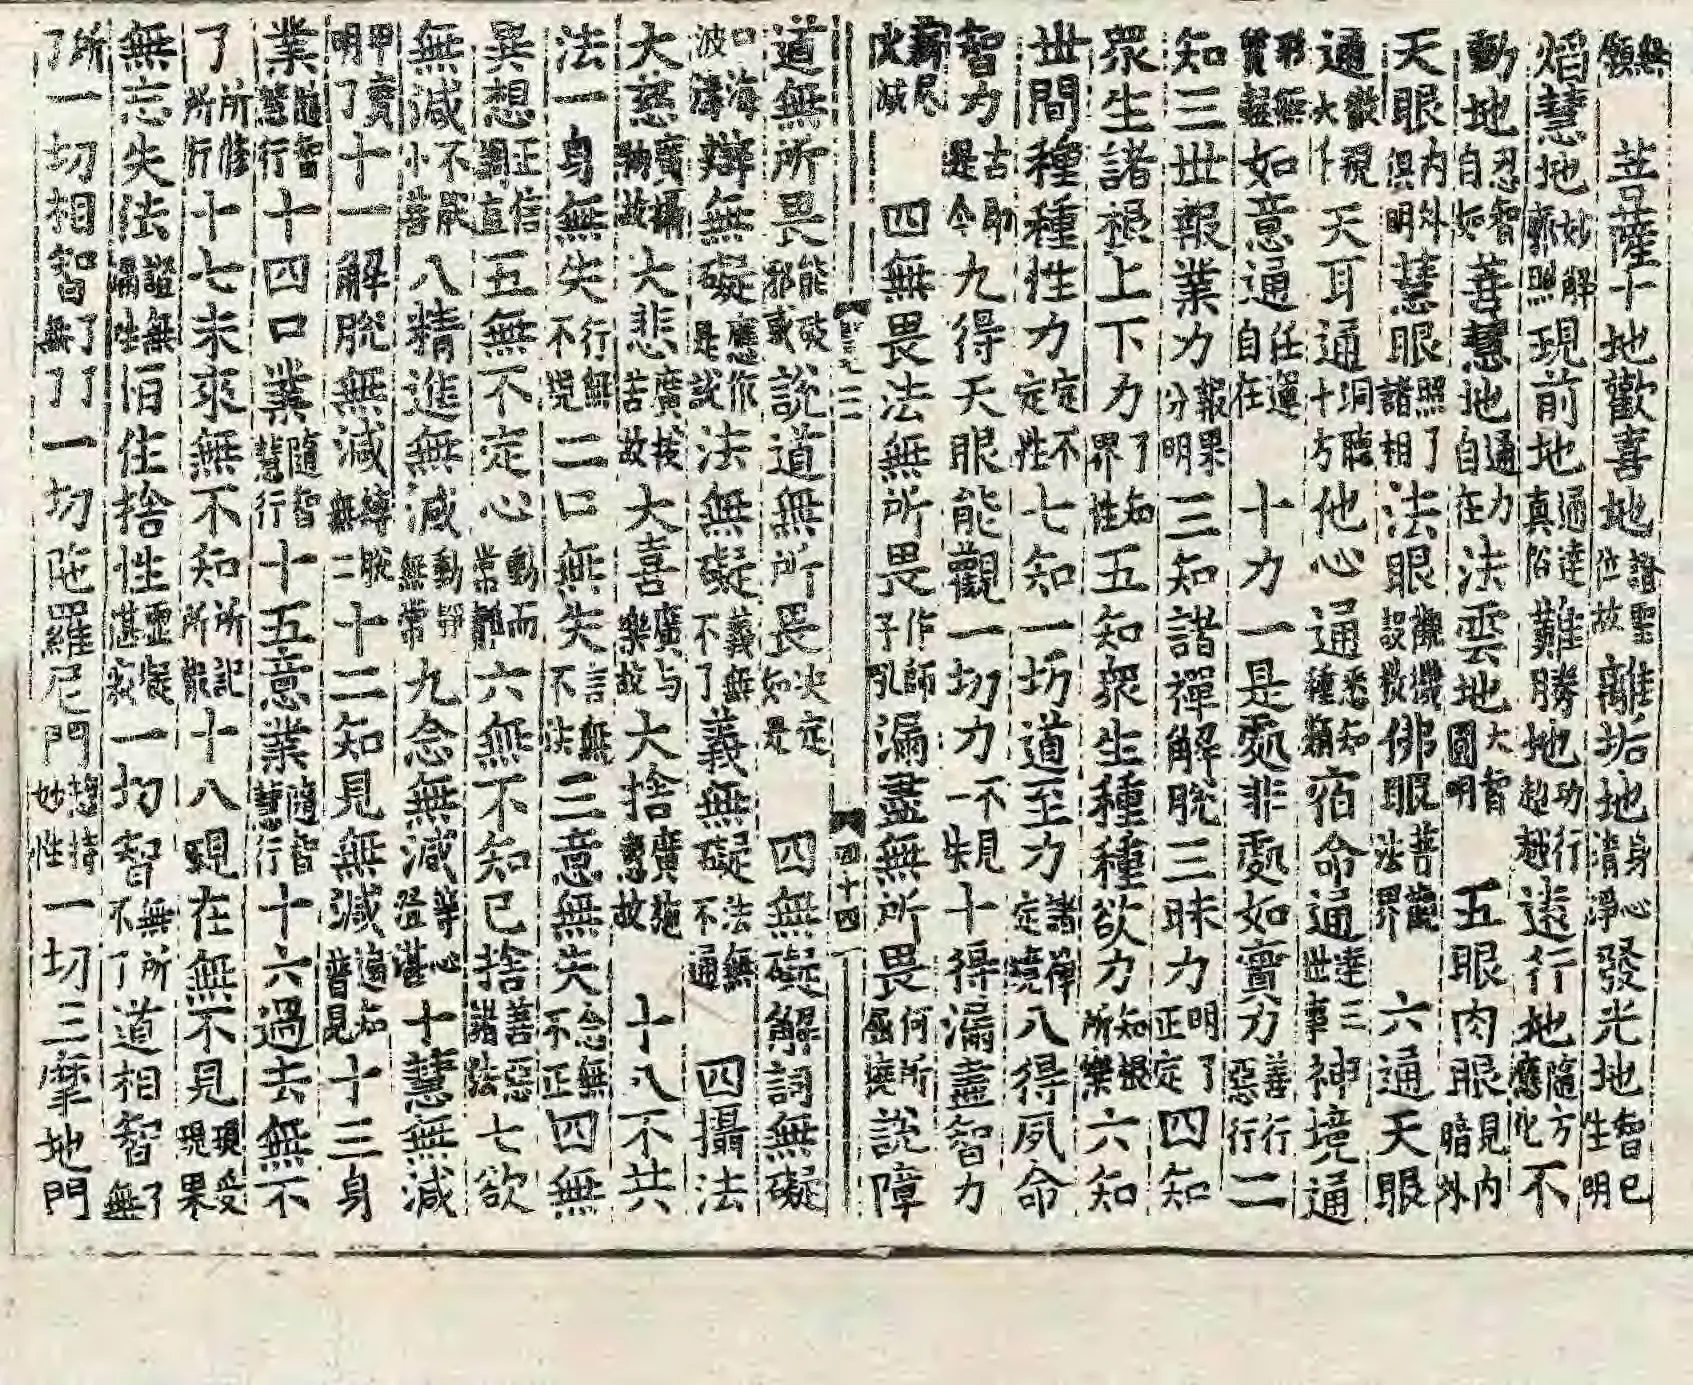 無願菩薩十地歡喜地證聖位故離垢地身心清淨發光地智已生明
焰慧地妙解廓照現前地通達真俗難勝地功行超越遠行地隨方應化不
動地忍智自如善慧地通力自在法雲地大智圓明五眼肉眼見內暗外
天眼內外俱明慧眼照了諸相法眼觀機設教佛眼菩薩法界六通天眼
通徹視大千天耳通洞聽十方他心通悉知種類宿命通達三世事神境通
形無質礙如意通任運自在十力一是處非處如實力善行惡行二
知三世報業力報果分明三知諸禪解脫三昧力明了正定四知
眾生諸根上下力了知界性五知眾生種種欲力知根所樂六知
世間種種性力定不定性七知一切道至力諸禪定境八得夙命
智力古即是今九得天眼能觀一切力不見一失十得漏盡智力
薪尽火滅四無畏法無所畏作師子吼漏盡無所畏何所屈撓說障
道無所畏能破邪或說道無所畏決定知是四無礙解詞無礙
口海波濤辯無礙應作是說法無礙義無不了義無礙法無不通四攝法
大慈廣攝故大悲廣拔苦故大喜廣与樂故大捨廣施故十八不共
法一身無失行無不晃二口無失言無不法三意無失念無不正四無
異想正信調直五無不定心動而常靜六無不知已捨善惡諸法七欲
無減不厭小善八精進無減動靜無常九念無減等心澄湛十慧無減
明了十一解脫無減無縛脫二十二知見無減遍知普見十三身
業隨智慧行十四口業隨智慧行十五意業隨智慧行十六過去無不
了所修所行十七未來無不知所記所能十八現在無不見現受現果
無忘失法證無生恒住捨性湛寂一切智無所不了道相智了無
所了一切相智了無了一切陀羅尼門總持妙性一切三摩地門